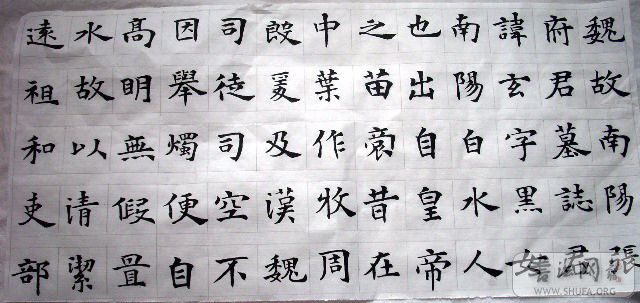 魏故南陽張
府君墓誌君
諱玄字黑女
南陽白水人
也出自皇帝
之苗裔昔在
中葉作牧周
殷爰及漢魏
司徒司空不
因舉燭便自
高明無假置
水故以清潔
遠祖和吏部
WWW.SHUFA.ORG